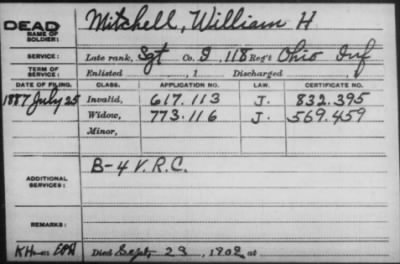 DEAD Mitchell, William H
NAME OF SOLDIER:
SERVICE: Late rank, Sgt Co. I, 118 Reg't Ohio Inf
TERM OF SERVICE: Enlisted , 1 Discharged , 1
DATE OF FILING. CLASS. APPLICATION NO. LAW. CERTIFICATE NO.
1887 July 25 Invalid, 617.113 J. 832.395
Widow, 773.116 J. 569.459
Minor,
B-4 V.R.C.
ADDITIONAL SERVICES:
REMARKS:
Died Sept 29, 1902, at